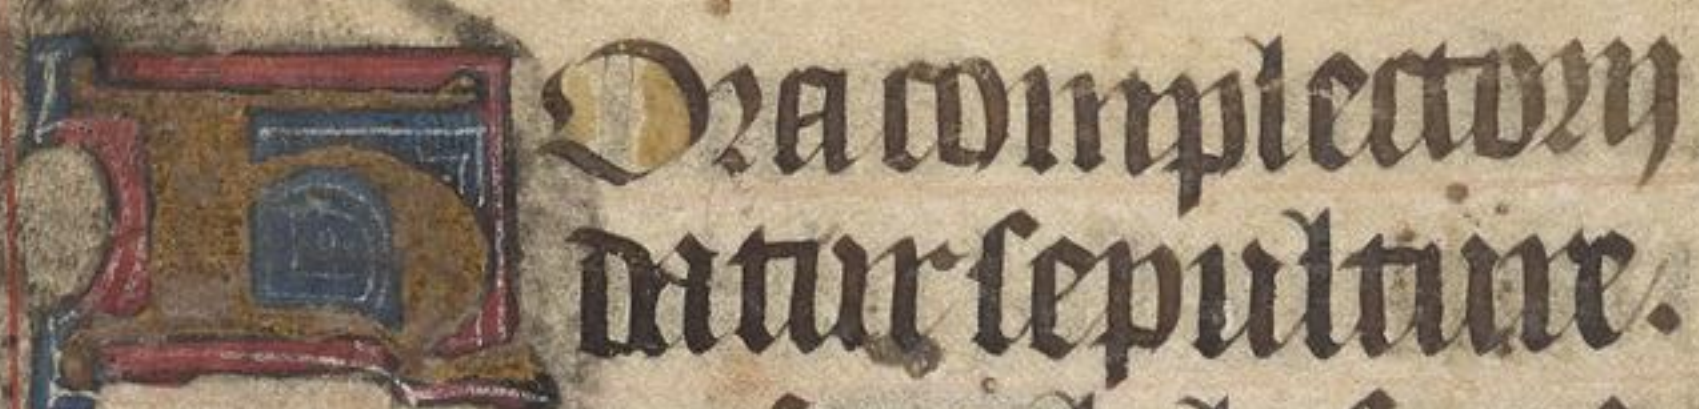 HOra completorij
datur sepulture.